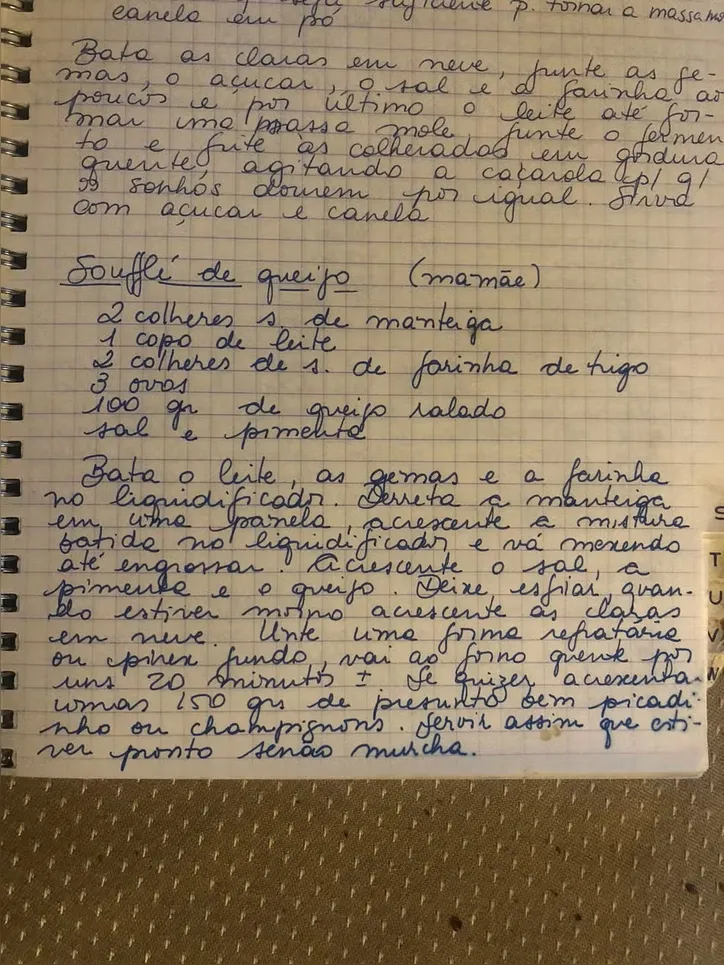 suficiente p. tornar a massa mo
canela em pó
Bata as claras em neve, junte as ge-
mas, o açucar, o sal e a farinha aos
poucos e por último o leite até for-
mar uma massa mole, junte o fermen
to e frite as colheradas em gordura
quente, agitando a caçarola p/ q/
os sonhos dourem por igual. Sirva
com açucar e canela
Soufflé de queijo (mamãe)
2 colheres s. de manteiga
1 copo de leite
2 colheres de s. de farinha de trigo
3 ovos
100 gr de queijo ralado
sal e pimenta
Bata o leite, as gemas e a farinha
no liquidificador. Derreta a manteiga
em uma panela, acrescente a mistura
batida no liquidificador e vá mexendo
até engrossar. Acrescente o sal, a
pimenta e o queijo. Deixe esfriar, quan-
do estiver morno acrescente as claras
em neve. Unte uma forma refratária
ou pirex fundo, vai ao forno quente por
uns 20 minutos ± Se quizer acrescenta-
umas 150 grs de presunto bem picadi-
nho ou champignons. Servir assim que esti-
ver pronto senão murcha.
S
T
U
V
W